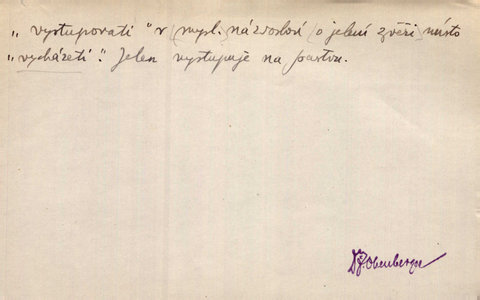 „ vystupovati " v mysl. názvosloví o jelení zvěři místo
„ vycházeti". Jelen vystupuje na pastvu.
Dr J. Obenberger